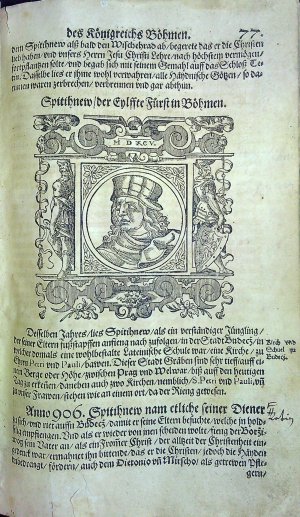 des Königreichs Böhmen. 77.
dem Spitihnew alß bald den Wissehrad ab/begerete das er die Christen
lieb haben/ vnd vnsers Herrn Jesu Christi Lehre/nach höchstem vermögen/
fortpflantzen solte/vnd begab sich mit seinem Gemahl auff das Schloß Te-
tin. Dasselbe lies er ihme wohl verwahren/alle Händnische Götzen/ so da-
rinnen waren zerbrechen/ verbrennen vnd gar abthun.
Spitihnew/der Eylffte Fürst in Böhmen.
M D XCV
Desselben Jahres/lies Spitihnew/als ein verständiger Jüngling/
der seiner Eltern fußstapffen anfieng nach zufolgen/in der Stadt Budecz/in
welcher domals eine wohlbestalte Lateinische Schule war/eine Kirche/ zu
Ehren Petri vnd Pauli/bawen. Dieser Stadt Gräben sind sehr tieff/auff ei-
nem Berge oder Höhe/zwischen Prag vnd Welwar/biß auff den heutigen
Tag zu erkennen/daneben auch zwo Kirchen/nemblich/S. Petri vnd Pauli/vnd
vnser Frawen/stehen wie an einem ort/da der Rieng gewesen.
Kirch vnd
Schuel zu
Budecz.
Anno 906. Spitihnew nam etliche seiner Diener
zu sich/vnd ritt auff Budecz/damit er seine Eltern besuchte/welche jn hold-
selig empfiengen. Vnd als er wieder von jnen scheiden wolte/fieng der Borzi-
wog sein Vater an/als ein Frommer Christ/ der allzeit der Christenheit ein-
gedenck war/ermahnet ihn bittende/das er die Christen/jedoch die Händen
vnbedrengt/ fördern/ auch dem
als getrewen Pfle-
gern/